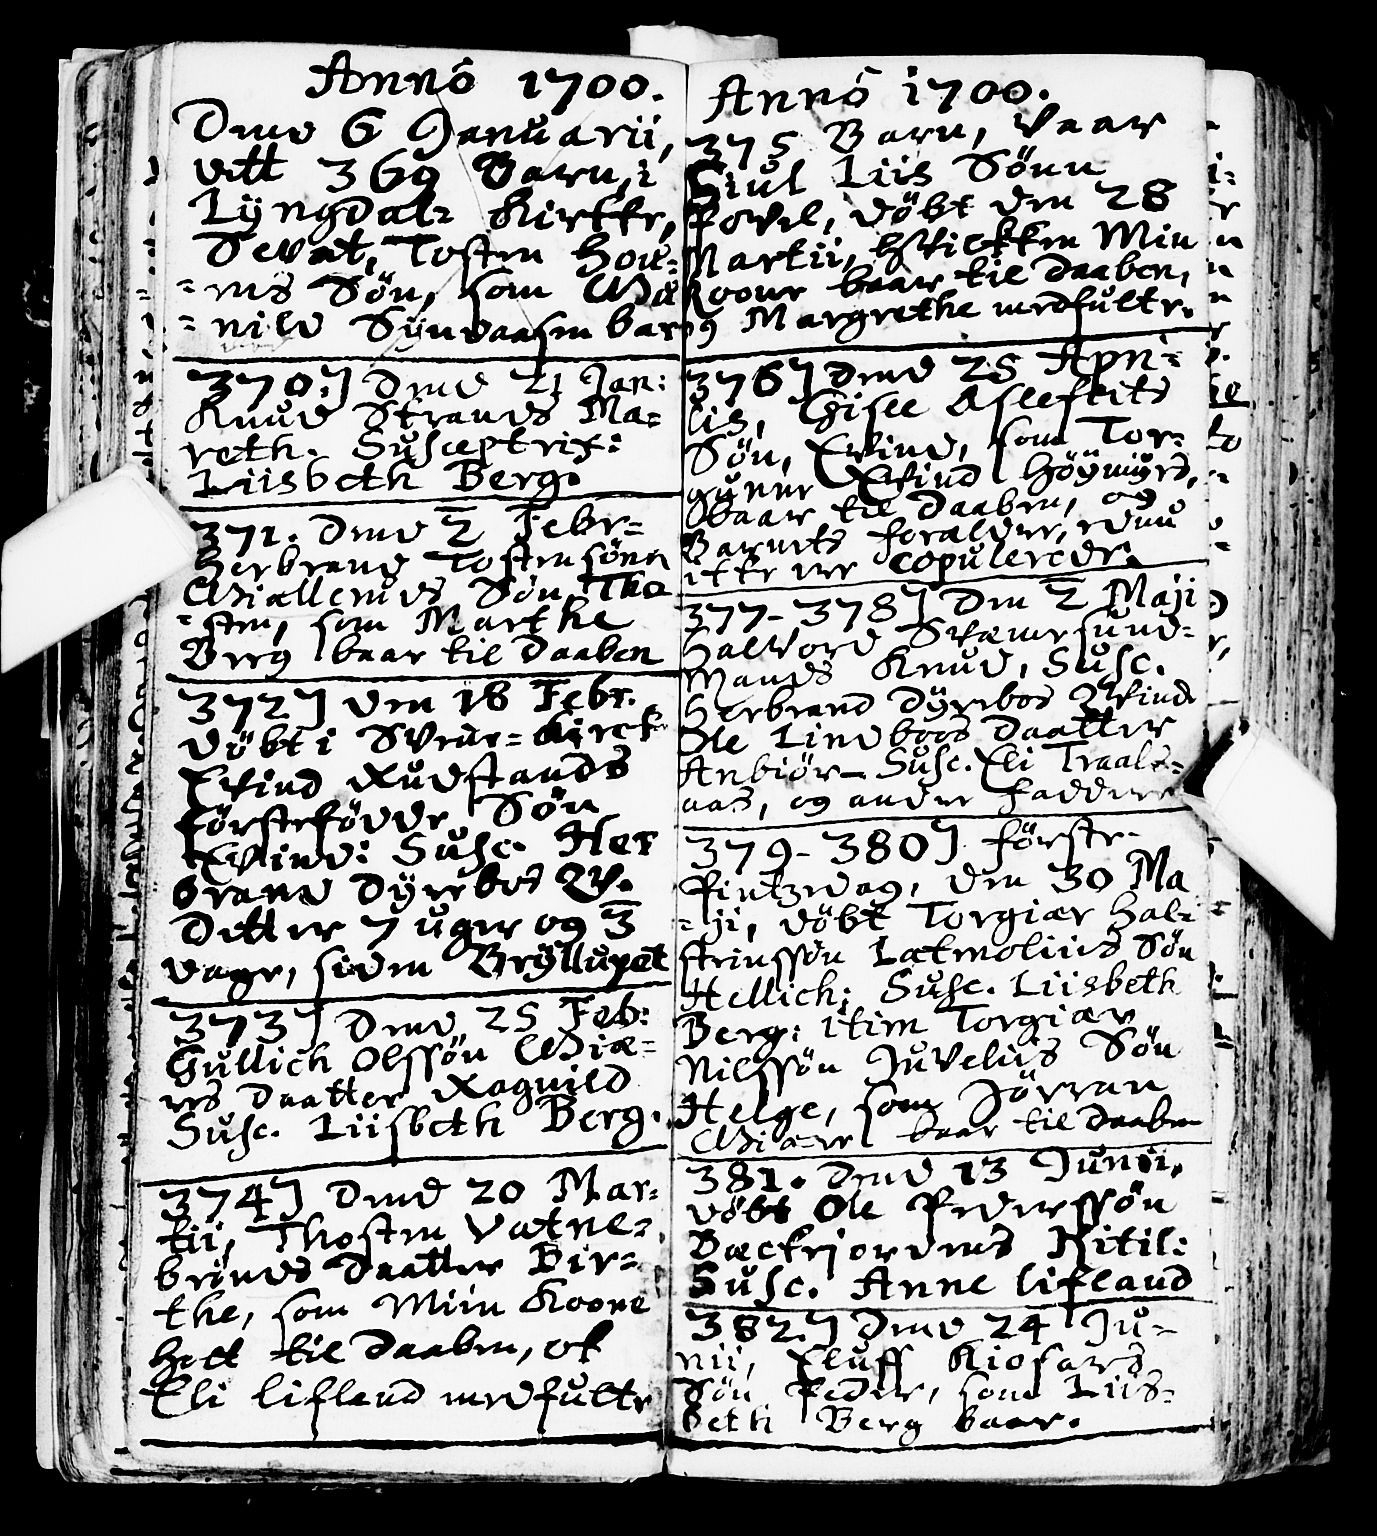 Anno 1700.
Dend 6 Januarii,
Ditt 369 Barn, i
Lyngdals Kirkke,
Sevat, Tosten Hou=
=ens Søn, som
=nild Synvaasen bar
370.] Dend 21 Jan:
Knud Strands Ma=
reth. Susceptrix:
Liisbeth Berg.
371. Dend 2 Febr=
Herbrand Tostensønn
Giælleruds Søn Tho
=sten, som Marthe
Berg baar til Daaben
372] den 18 Febr.
døbt i Svene=Kirck
Evind Rudstands
førstefødde Søn
Evind: Susc. Her
brand Dyrebos Qv.
Dett er 7 uger og 3
dage, siden Brylluppet
373] Dend 25 Feb:
Gullich Olssøn Giæ=
res Daatter Ragnild
Susc. Liisbeth Berg.
374] Dend 20 Mar=
tii, Thosten Vatne=
brønds Daatter Bir=
the, som Miin Koone
holt til Daaben, ok
Eli lifland medfulte
Anno 1700.
375 Barn, vaar
Giul Liis Sønn
Povel, døbt den 28
Martii, Min
Koone baar til Daaben,
og Margrethe medfulte.
376] dend 25 Apri=
lis, Gisle Asleftets
Søn, Evind, som Tor=
gunnr Evind Höymyrs,
baar til Daaben, og
Barnets foralder, ennu
ikke ere copulerede.
377-378] Den 2 Maji
Halvord Skiemersund=
Mands Knud, Susc.
Herbrand Dyrebos Qvinde
Ole Lindboos Daatter
Anbiør- Susc. Eli Traals=
aas, og andre Faddere
379-380] første-
Pintzedag, den 30 Ma
=ji, døbt Torgiær Hal=
steinssøn Lætmoliids Søn
Hellich; Susc. Liisbeth
Berg: item Torgiær
Nilssøn Juveliis Søn
Helge, som Jørran
Giære baar til Daaben
381. Dend 13 Junii,
døbt Ole Pederssøn
Bæckjordens Kitil:
Susc. Anne lifland
382.] Dend 24 Ju=
nii, Eluff Kiosards
Søn Peder, som Liis=
beth Berg baar.